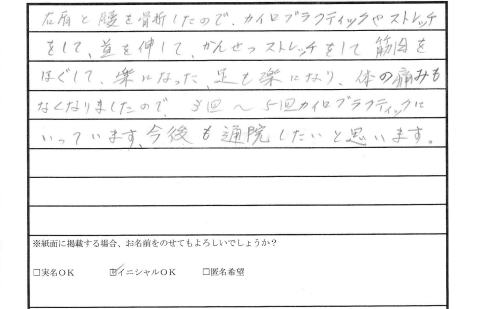 右肩と腰を骨折したので、カイロプラクティックやストレッチ
をして、首を伸して、かんせつストレッチをして筋肉を
ほぐして、楽になった、足も楽になり、体の痛みも
なくなりましたので、3回〜5回カイロプラクティックに
いっています、今後も通院したいと思います。
※紙面に掲載する場合、お名前をのせてもよろしいでしょうか？
□実名OK ☑イニシャルOK □匿名希望